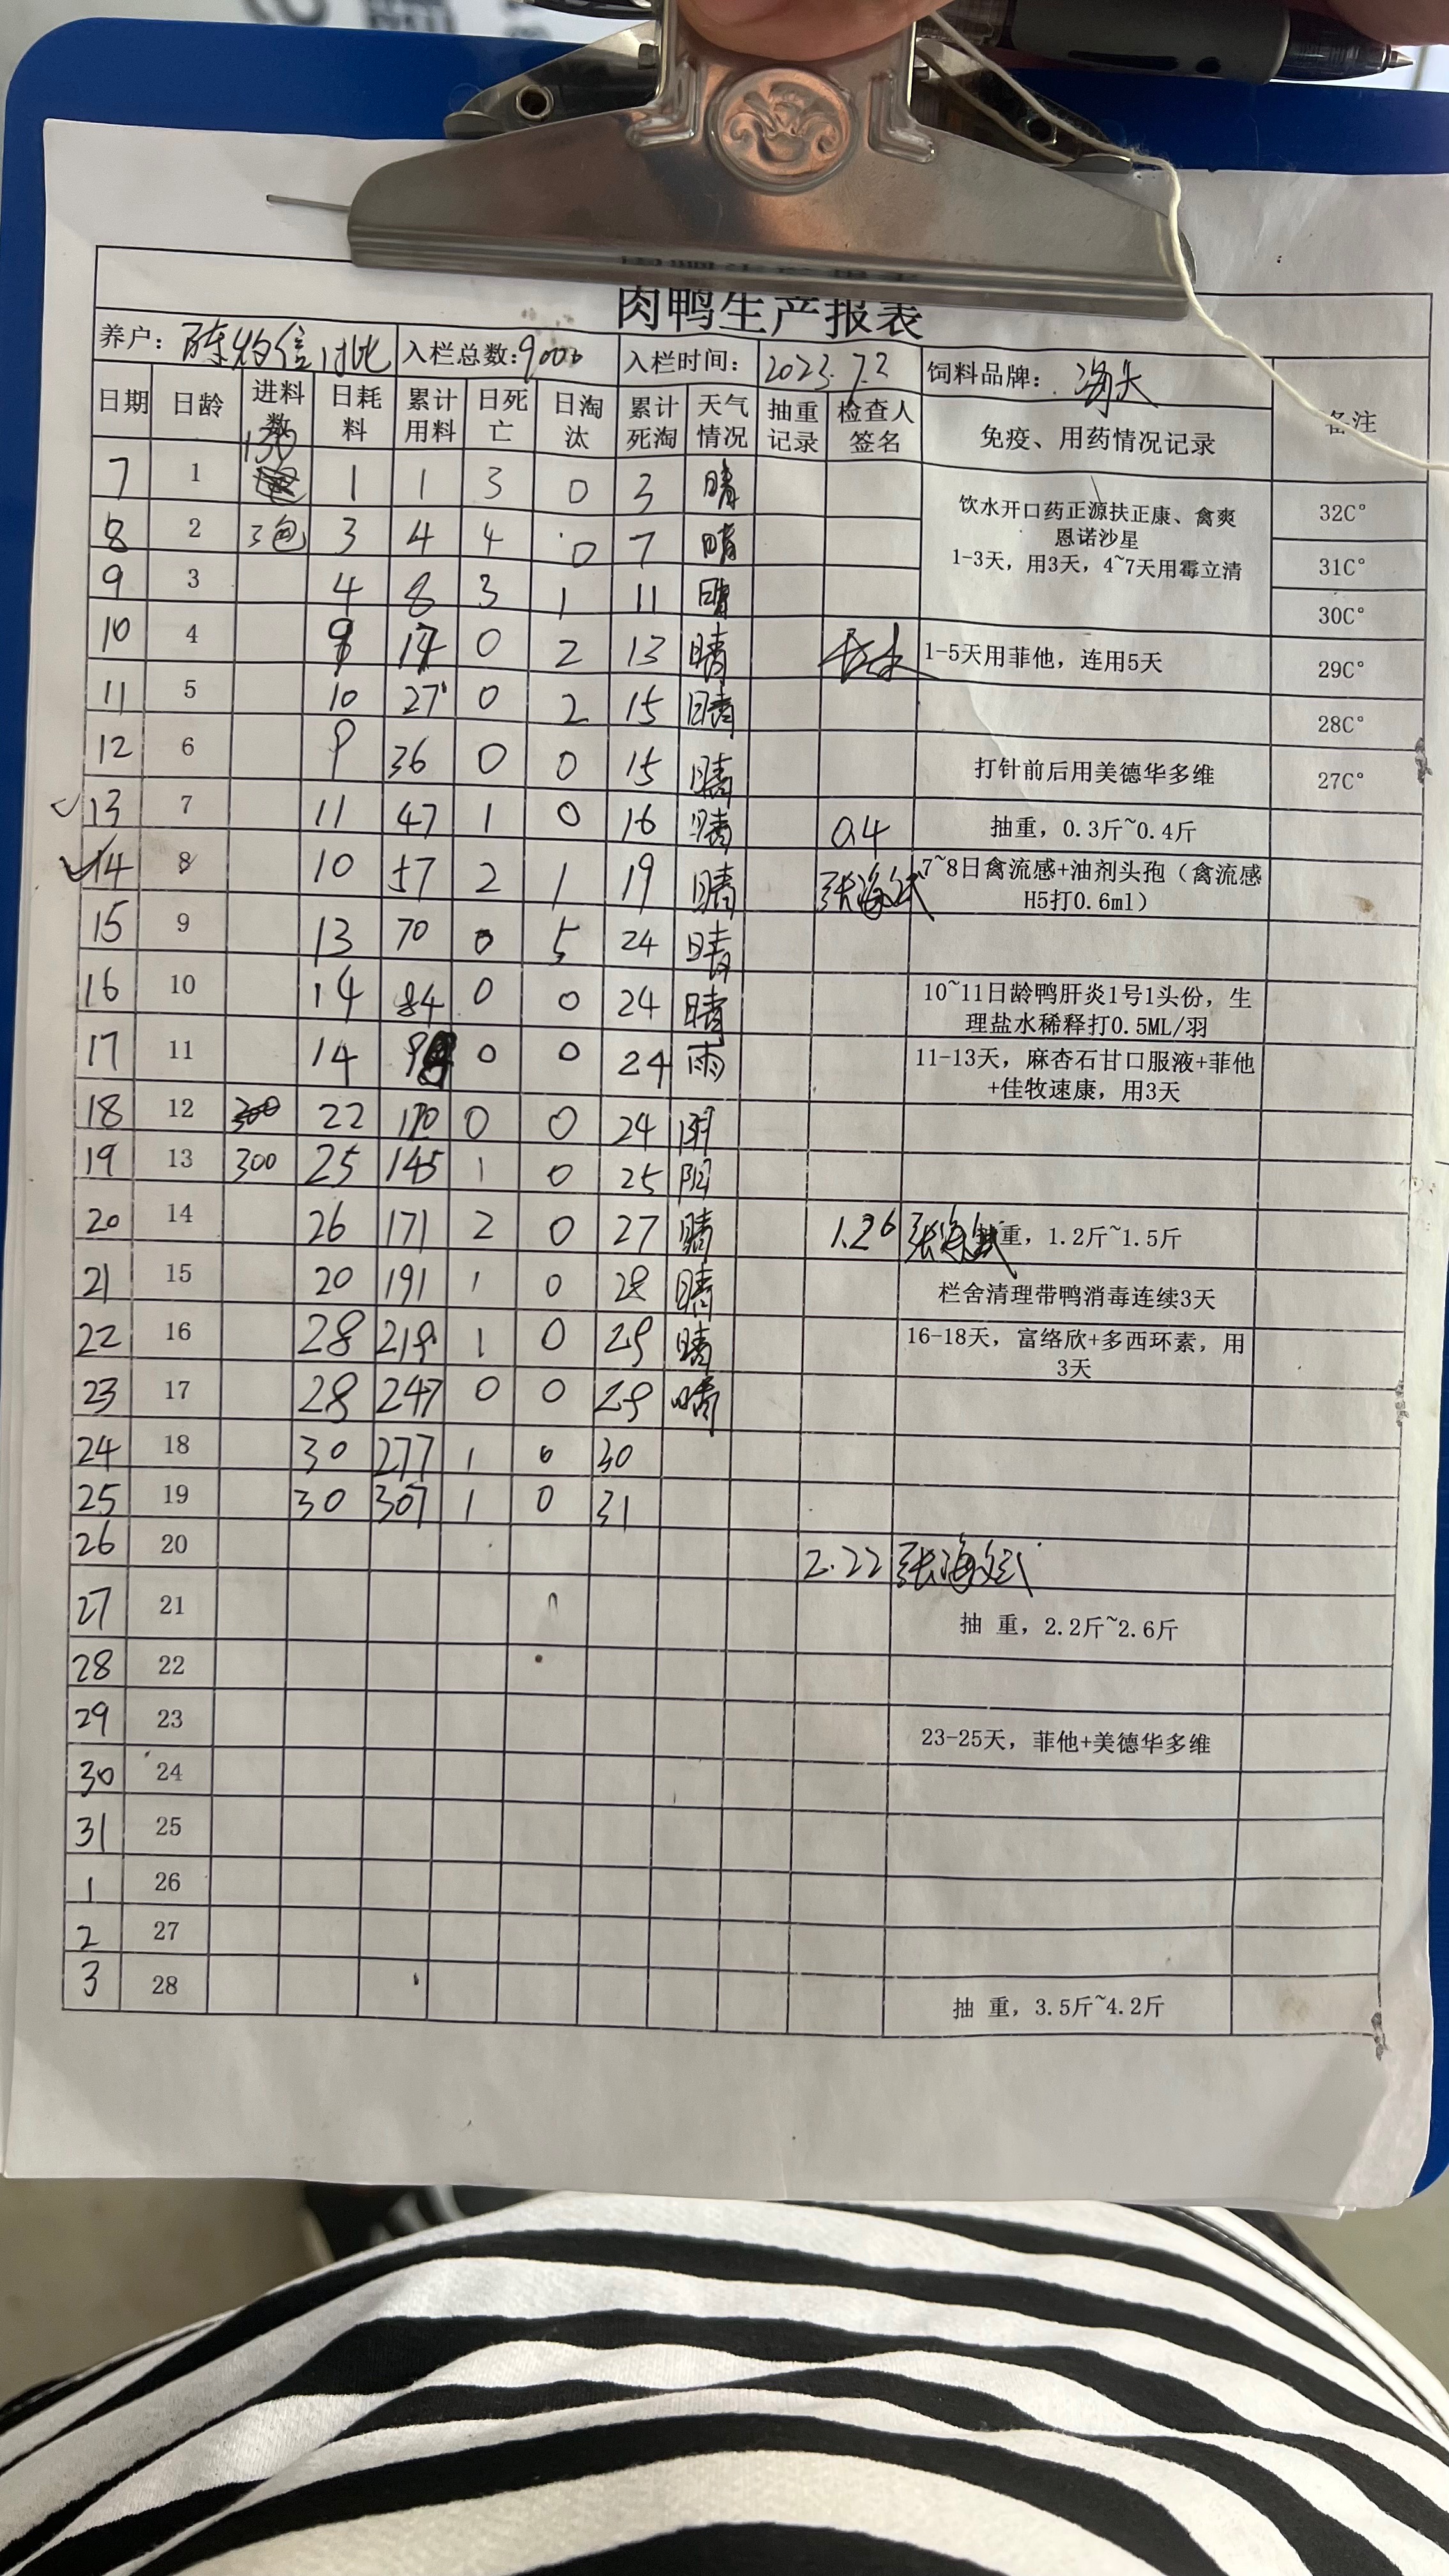 肉鸭生产报表
养户： 入栏总数：9000 入栏时间： 2023.7.7 饲料品牌： 海大 备注
日期 日龄 进料数 日耗料 累计用料 日死亡 日淘汰 累计死淘 天气情况 抽重记录 检查人签名 免疫、用药情况记录
7 1 130 1 1 3 0 3 晴 饮水开口药正源扶正康、禽爽 32C°
恩诺沙星
8 2 3包 3 4 4 0 7 晴 1-3天，用3天，4~7天用霉立清 31C°
9 3 4 8 3 1 11 晴 30C°
10 4 9 17 0 2 13 晴 1-5天用菲他，连用5天 29C°
11 5 10 27 0 2 15 晴 28C°
12 6 9 36 0 0 15 晴 打针前后用美德华多维 27C°
13 7 11 47 1 0 16 晴 0.4 抽重，0.3斤~0.4斤
14 8 10 57 2 1 19 晴 张海斌 7~8日禽流感+油剂头孢（禽流感
H5打0.6ml）
15 9 13 70 0 5 24 晴
16 10 14 84 0 0 24 晴 10~11日龄鸭肝炎1号1头份，生
理盐水稀释打0.5ML/羽
17 11 14 98 0 0 24 雨 11-13天，麻杏石甘口服液+菲他
+佳牧速康，用3天
18 12 300 22 120 0 0 24 阴
19 13 300 25 145 1 0 25 阴
20 14 26 171 2 0 27 晴 1.26 张海斌 重，1.2斤~1.5斤
21 15 20 191 1 0 28 晴 栏舍清理带鸭消毒连续3天
22 16 28 219 1 0 29 晴 16-18天，富络欣+多西环素，用
3天
23 17 28 247 0 0 29 晴
24 18 30 277 1 0 30
25 19 30 307 1 0 31
26 20 2.22 张海斌
27 21 抽 重，2.2斤~2.6斤
28 22
29 23 23-25天，菲他+美德华多维
30 24
31 25
1 26
2 27
3 28 抽 重，3.5斤~4.2斤